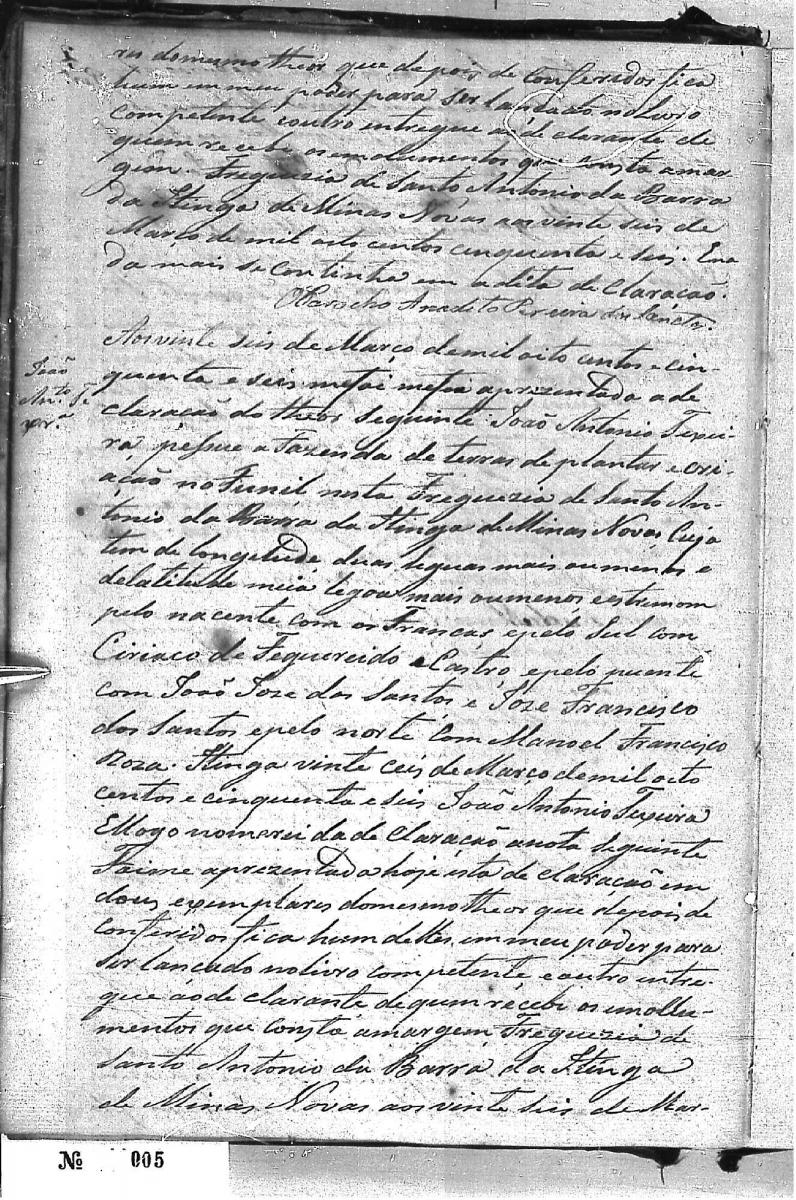 res domesmo theor que depois de conferados fica
hum em meu poder para ser lancado no livro
competente e outro entregue ao de clarante de
quem recebi os emolumentos que consta a mar
gem. Freguezia de Santo Antonio da Barra
da Itinga de Minas Novas aos vinte seis de
Marco de mil oito centos cinquenta e seis. E na
da mais se continha em a dita de claracaõ.
O Parocho Anacleto Pereira dos Sanctos.
Aos vinte seis de Março de mil oito centos e cin-
quenta e seis me foi me foi aprezentada a de
claracaõ do theor seguinte. Joaõ Antonio Texei-
João
Anto. Te
xra.
ra, pessue a Fazenda de terras de plantar e cri-
açaõ no Funil nesta Freguezia de Santo An-
tonio da Barra da Itinga de Minas Novas Cuja
tem de longetude duas leguas mais ou menos e
delatitude meia legoa mais oumenos, estremom
pelo nacente com os Francas, epelo Sul com
Ciriaco de Feguereido e Castro, epelo puente
com Joaõ Joze dos Santos e Joze Francisco
dos Santos epelo norte com Manoel Francisco
Roza. Itinga vinte ceis de Marco demil octo
centos e cinquenta e seis Joaõ Antonio Texeira
E logo nomerei da de claracaõ a nota seguinte
Foi me aprezentada hoje esta de claracaõ em
dous exemplares domesmo theor que depois de
conferidos fica hum delles em meu poder para
ser lancado nolivro competente e outro intre-
gue áo de clarante dequem recebi os emollu-
mentos que consta amargem Freguezia de
Santo Antonio da Barra da Itinga
de Minas Novas aos vinte seis de Mar-
№ 005